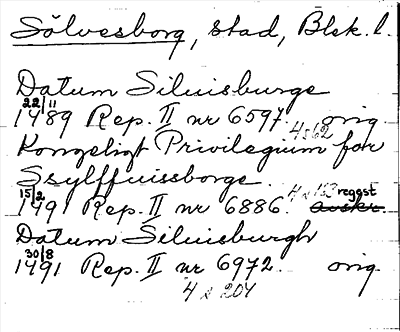 Sölvesborg, stad, Blek. l.
Datum Siluisburge
22/11
1489 Rep. II nr 6597. orig
4 s 62
Kongeligt Privilegium for
Ssylffuissborge
15/2 4 s 153 regest
1491 Rep. II nr 6886. avskr.
Datum Siluisburgh
30/8
1491 Rep. II nr 6972. orig
4 s 204